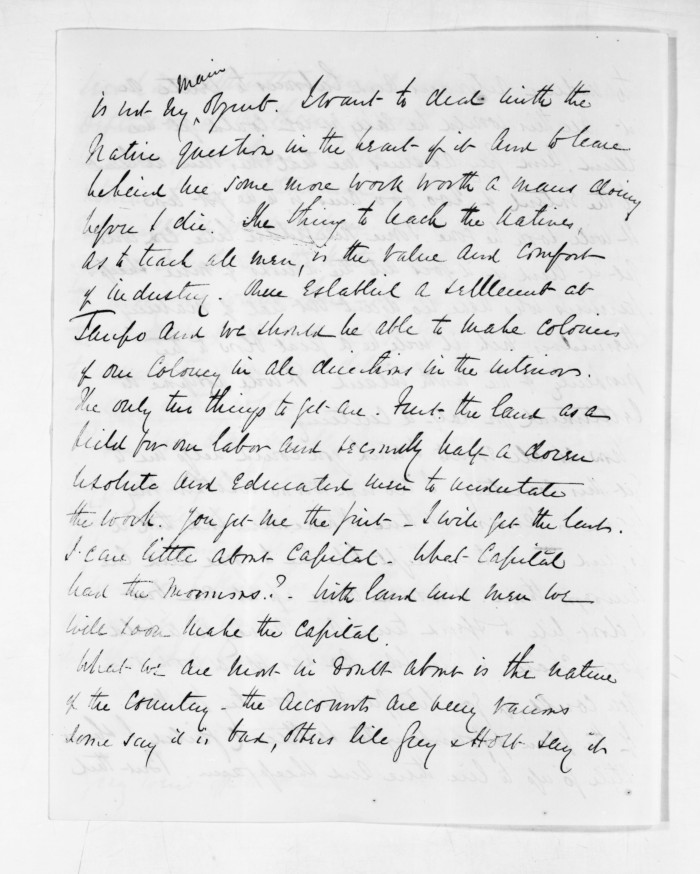 main
is not my object. I want to deal with the
Native question in the heart of it and to leave
behind me some more work worth a mans doing
before I die. The thing to teach the natives,
as to teach all men, is the value and comfort
of industry. Once Establish a settlement at
Taupo and we should be able to make colonies
of our Colony in all directions in the interior.
The only two things to get are. First the land as a
field for our labor and secondly half a dozen
resolute and Educated men to undertake
the work. You get me the first - I will get the last.
I care little about Capital. What Capital
had the Mormons.? - With land and men we
will soon make the capital.
What we are most in doubt about is the nature
of the country - the accounts are very various
some say it is bad, others like Grey & Holt say it is